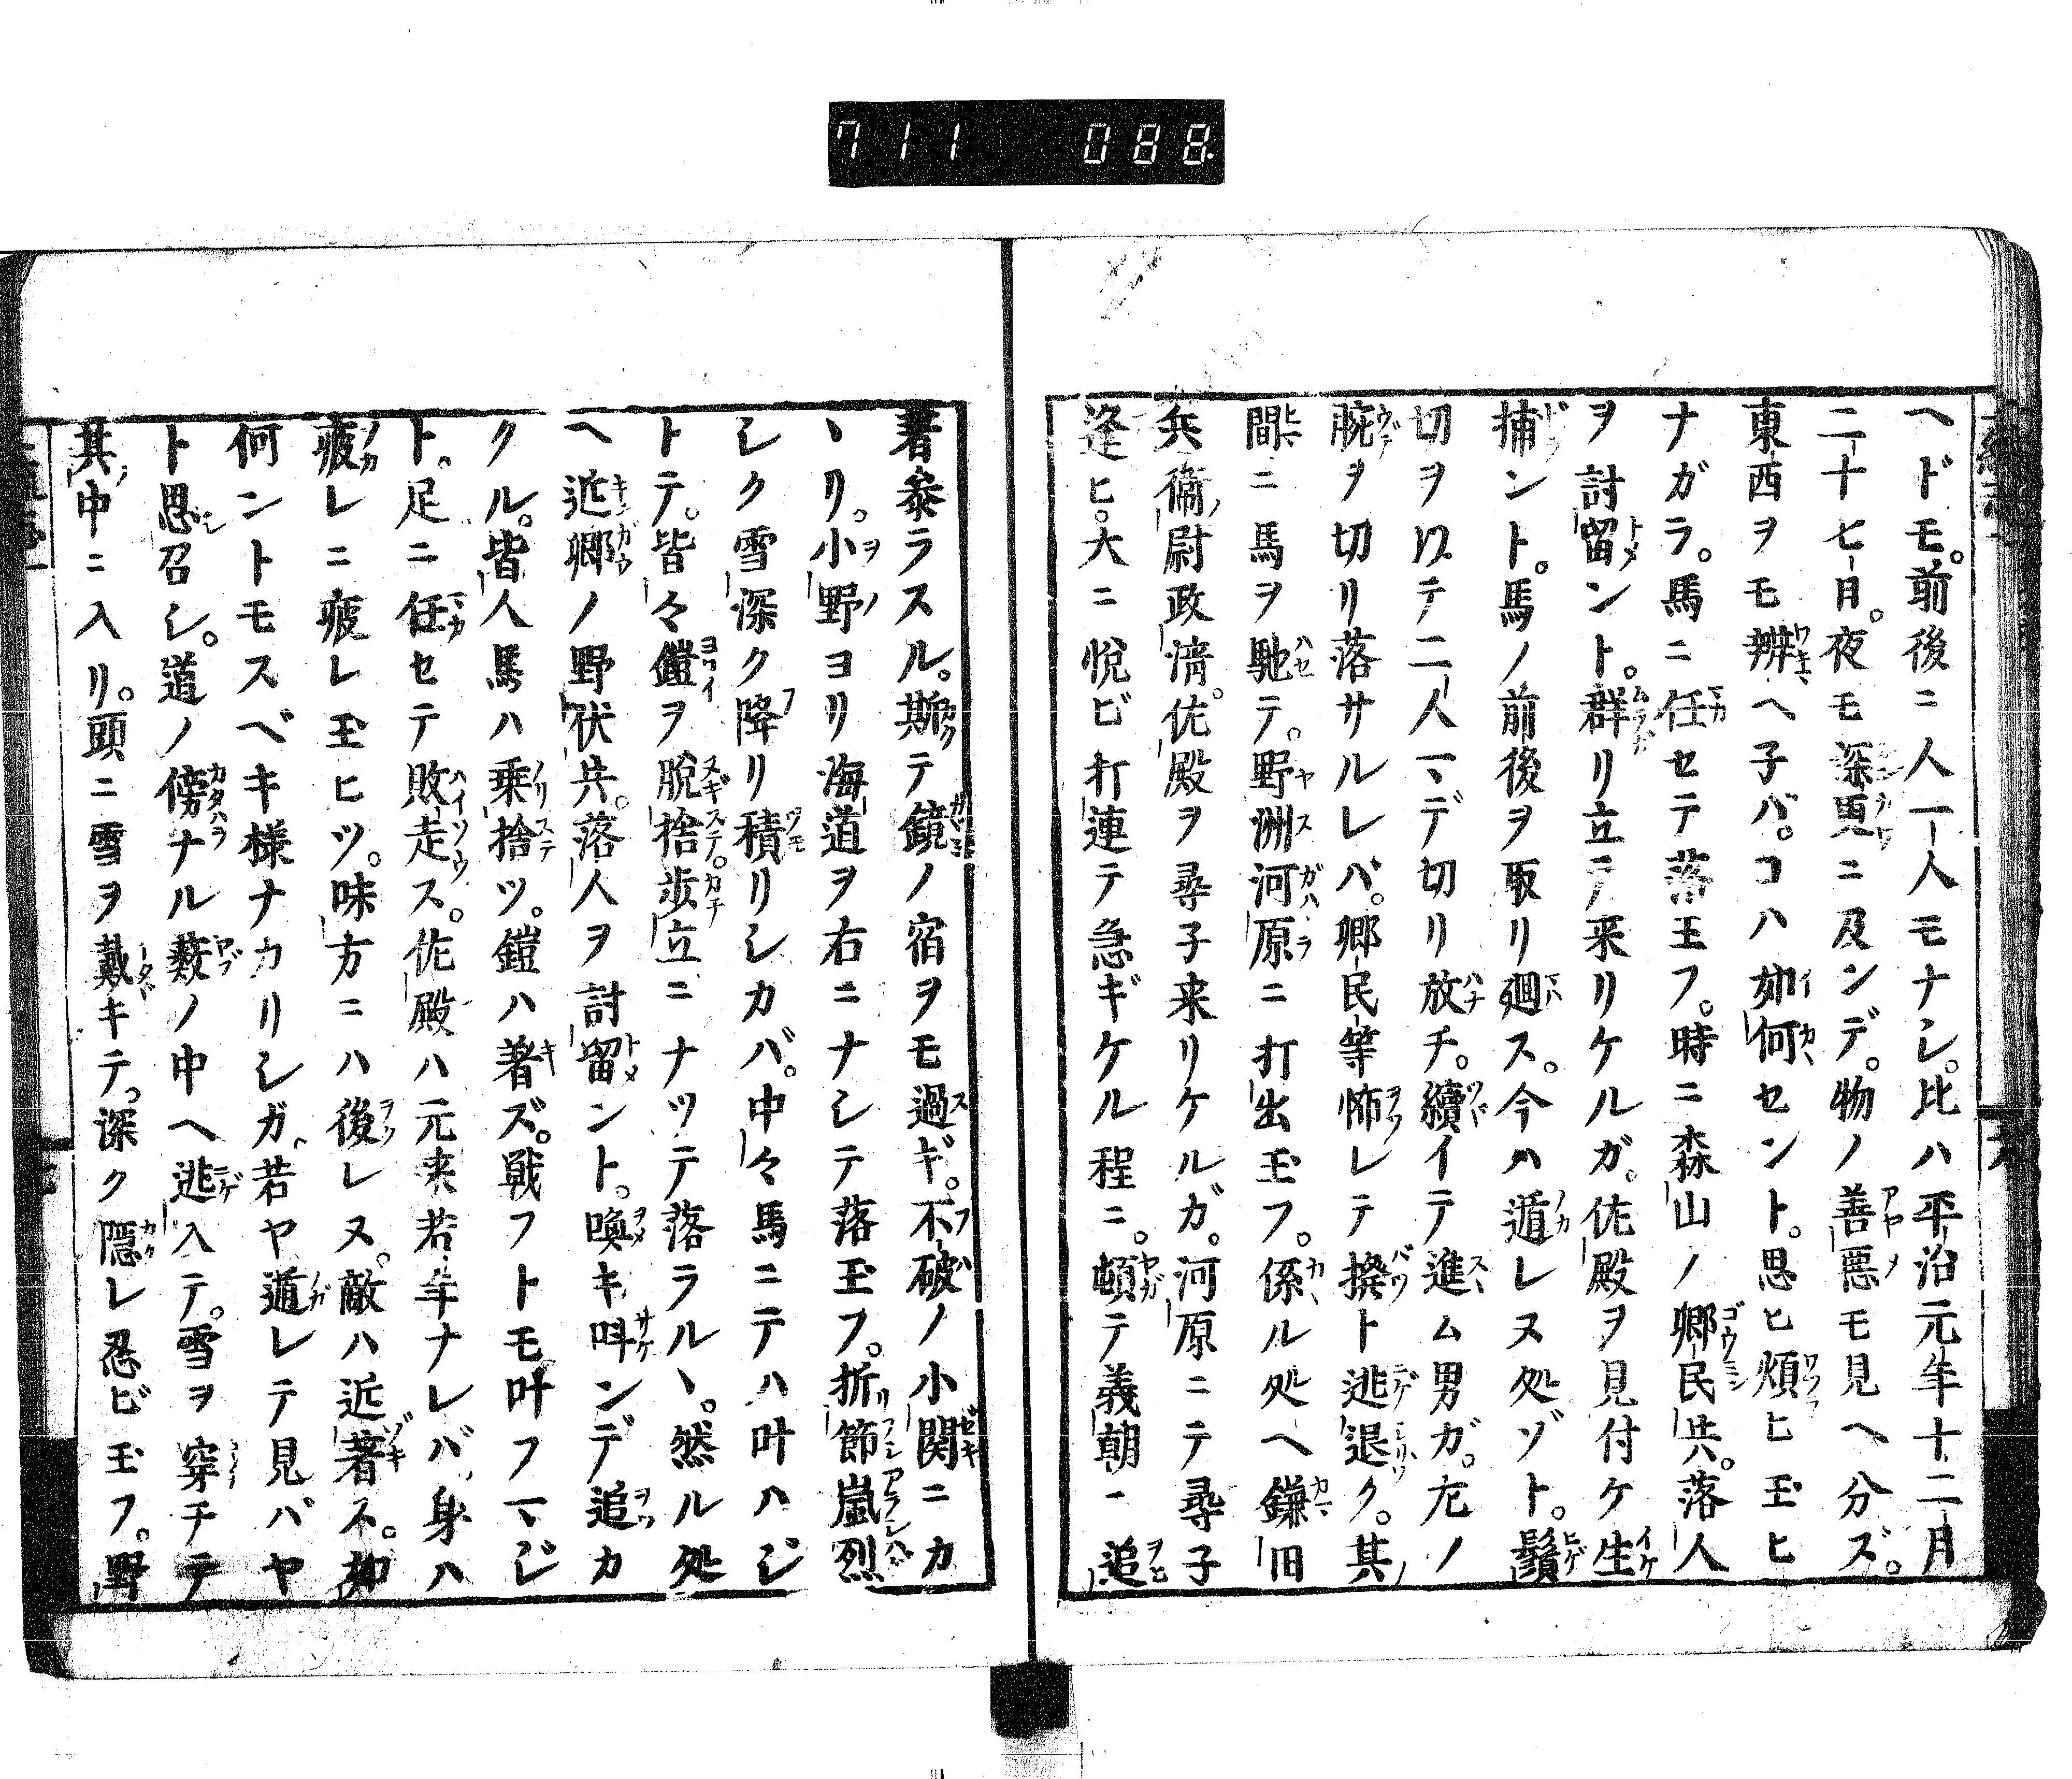 711 088
ヘドモ。前後ニ人一人モナシ。比ハ平治元年十二月
二十七月。夜モ深更ニ及ンデ。物ノ善悪モ見ヘ分ズ。
東西ヲモ辨ヘ子バ。コハ如何セント。思ヒ煩ヒ玉ヒ
ナガラ。馬ニ任セテ落玉フ。時ニ森山ノ郷民共。落人
ヲ討留ント。群リ立テ来リケルガ。佐殿ヲ見付ケ生
捕ント。馬ノ前後ヲ取リ廻ス。今ハ遁レヌ処ゾト。鬚
切ヲ以テ二人マデ切リ放チ。續イテ進ム男ガ。左ノ
腕ヲ切リ落サルレバ。郷民等怖レテ撥ト逃退ク。其
間ニ馬ヲ馳テ。野洲河原ニ打出玉フ。係ル処ヘ鎌田
兵衛尉政清。佐殿ヲ尋子来リケルガ。河原ニテ尋子
逢ヒ。大ニ悦ビ打連テ急ギケル程ニ。頓テ義朝ニ追
著参ラスル。斯テ鏡ノ宿ヲモ過ギ。不破ノ小関ニカ
ヽリ。小野ヨリ海道ヲ右ニナシテ落玉フ。折節嵐烈
シク雪深ク降リ積リシカバ。中々馬ニテハ叶ハジ
トテ。皆々鎧ヲ脱捨。歩立ニナツテ落ラルヽ。然ル処
ヘ近郷ノ野伏共。落人ヲ討留ント。喚キ叫ンデ追カ
クル。皆人馬ハ乗捨ツ。鎧ハ著ズ。戦フトモ叶フマジ
ト。足ニ任セテ敗走ス。佐殿ハ元来若年ナレバ身ハ
疲レニ疲レ玉ヒツ。味方ニハ後レヌ。敵ハ近著ス。如
何ントモスベキ様ナカリシガ。若ヤ遁レテ見バヤ
ト思召シ。道ノ傍ナル薮ノ中ヘ逃入テ。雪ヲ穿チテ
其中ニ入リ。頭ニ雪ヲ戴キテ。深ク隠レ忍ビ玉フ。野